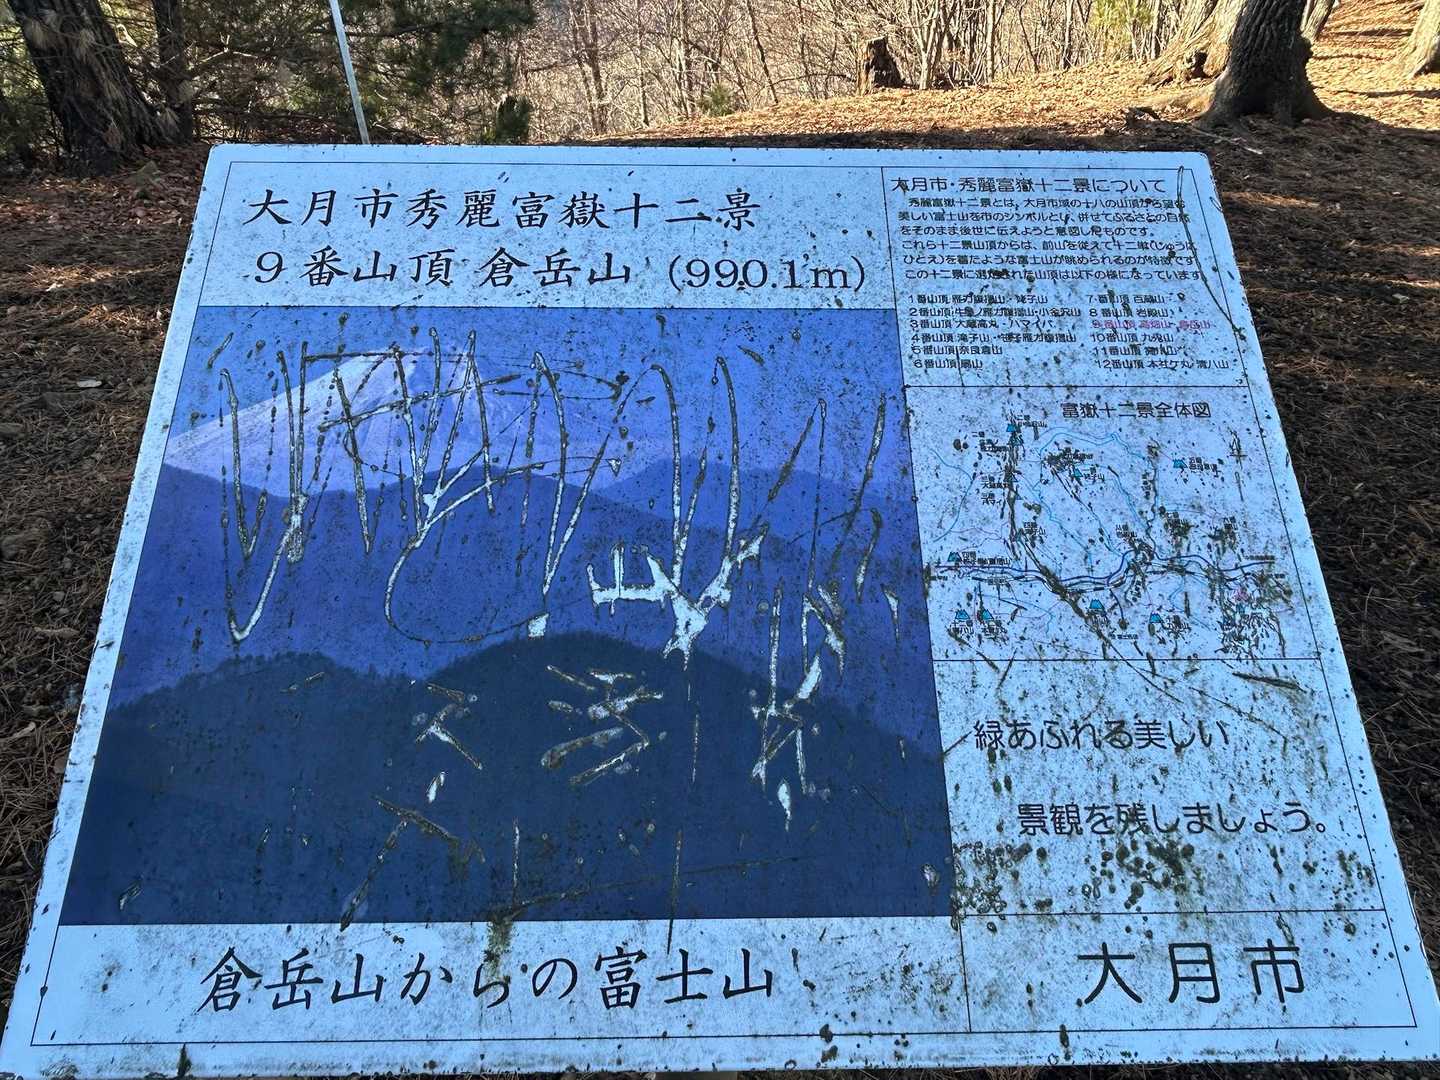 大月市秀麗富嶽十二景
9番山頂 倉岳山 (990.1m)
大月市・秀麗富嶽十二景について
秀麗富嶽十二景とは、大月市域の十八の山頂から望む
美しい富士山を市のシンボルとし、併せてふるさとの自然
をそのまま後世に伝えようと意図したものです。
これら十二景山頂からは、前山を従えて十二単(じゅうに
ひとえ)を着たような富士山が眺められるのが特徴です。
この十二景に選定された山頂は以下の様になっています。
1番山頂 雁ガ腹摺山・姥子山
2番山頂 牛奥ノ雁ガ腹摺山・小金沢山
3番山頂 大蔵高丸・ハマイバ
4番山頂 滝子山・笹子雁ガ腹摺山
5番山頂 奈良倉山
6番山頂 扇山
7番山頂 百蔵山
8番山頂 岩殿山
9番山頂 高畑山・倉岳山
10番山頂 九鬼山
11番山頂 高川山
12番山頂 本社ケ丸・清八山
富嶽十二景全体図
緑あふれる美しい
景観を残しましょう。
倉岳山からの富士山
大月市